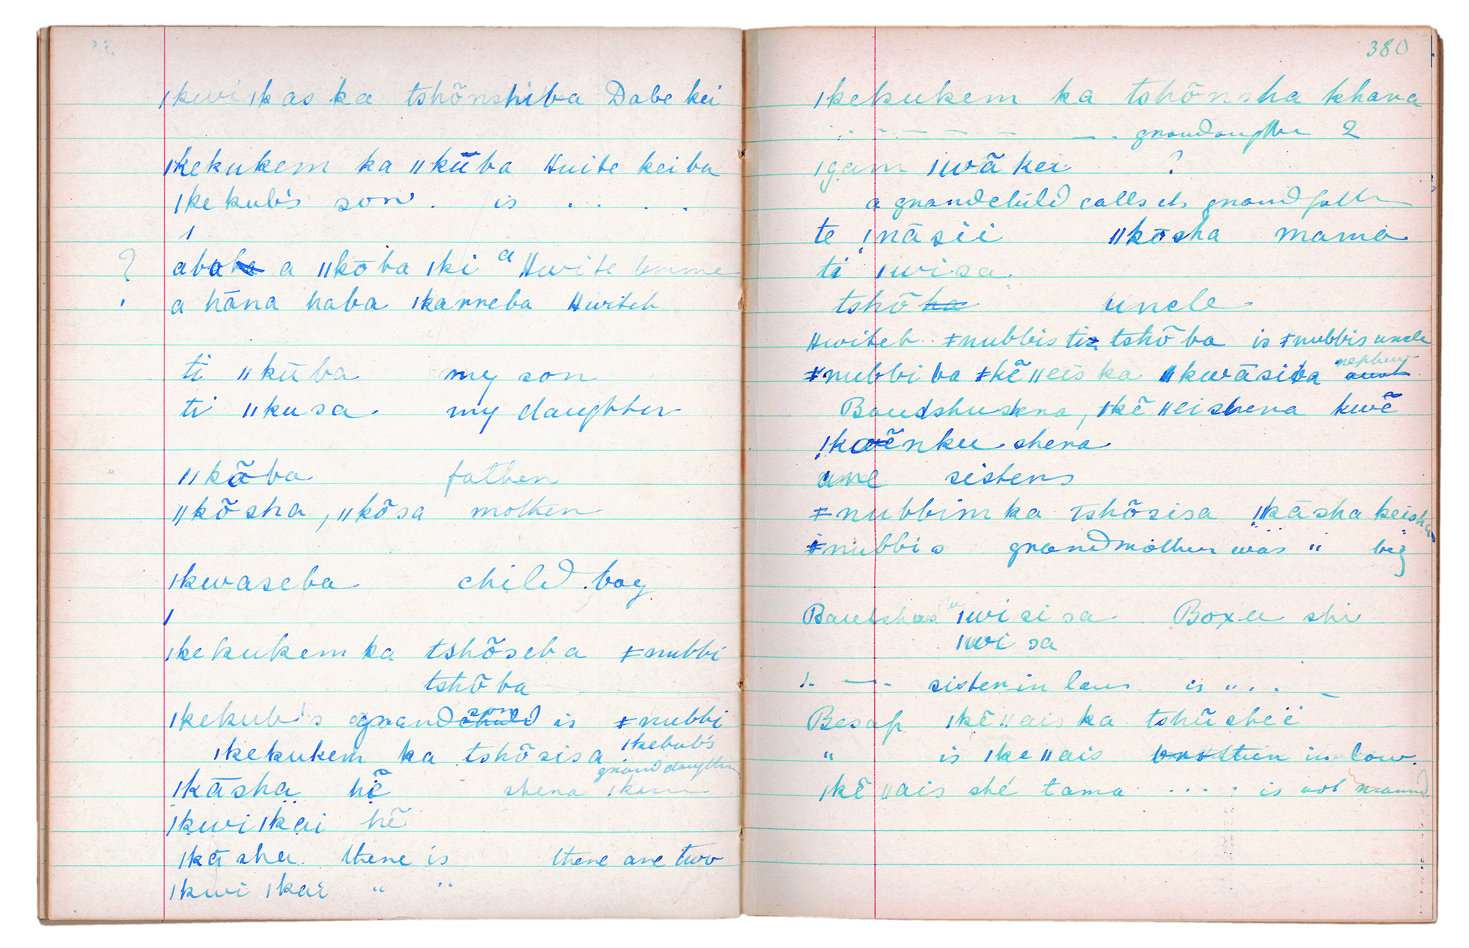 ǀkwi ǀkas ka tshõnshiba Dabe kei
ǀkekukem ka ǁkūba Hwite kei ba
ǀkekub's son . is . . . .
ǀ
? aba a ǁkōba ǀki a Hwite
a hāna haba ǀkarreba Hwiteh
ti ǁkūba my son
ti ǁkusa . my daughter
ǁkõba father
ǁkõsha , ǁkõsa mother
ǀkwaseba child . boy
ǀ
ǀkekukem ka tshõseba ǂnubbi
tshōba
ǀkekub's grand child son is ǂnubbi
ǀkekukem ka tshõsisa ǀkekub's
grand daughter
ǀkāsha hẽ shena
ǀkwi ǀkai hẽ
ǀkā sha . there is there are two
ǀkwi ǀkai " "
380
ǀkekukem ka tshõnsha khara
granddaughter 2
ǀgam ǀwã kei ?
a grandchild calls its grandfather
te ǃnāsii ǁkōsha mama
ti ǀwisa
tshõ ha uncle
Hwiteh ǂnubbis ti tshōba is ǂnubbis uncle
ǂnubbi ba ǂkẽ ǁeis ka ǁkwāsiba nephew aunt
ǂkē ǁeishena kwẽ
ǃkwēnku shena
are sisters
ǂnubbim ka tshõsisa ǁkāsha keisha
ǂnubbi s grandmother was " big
ǀwi si sa Boxer shi
ǀwi sa
! — — . sister in law is " . . –
Besap ǀkē ǁais ka tshũ sheĩ
" is ǀke ǁais brother in law .
ǀkē ǁais shé tama . . . . is not